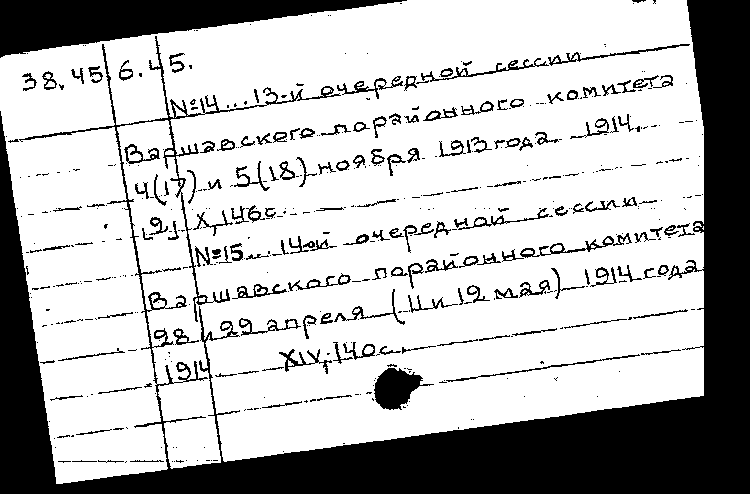 38.45 6.45.
№14...13-й очередной сессии
Варшавского порайонного комитета
4(17) и 5(18) ноября 1913 года. 1914.
[2] X, 146с.
№15... 14-ой очередной сессии
Варшавского порайонного комитета
28 и 29 апреля (11 и 12 мая) 1914 года
1914 XIV, 140с.